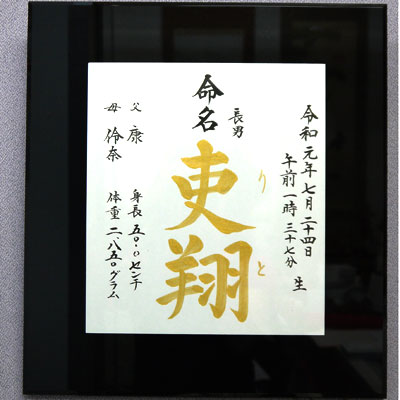 令和元年七月二十四日
午前一時三十七分 生
命名
長男
吏翔
りと
父 康
母 伶奈
身長 五〇.〇センチ
体重 二.八五〇グラム